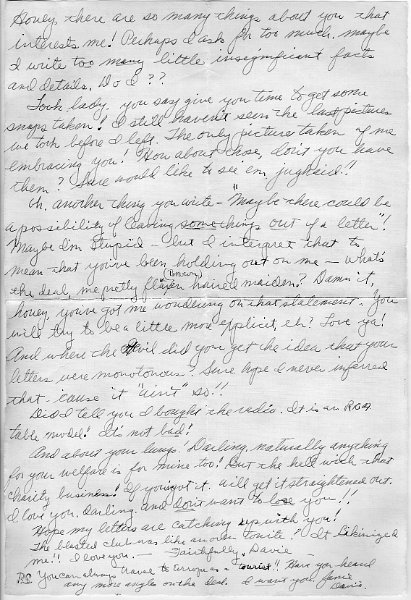 Honey, there are so many things about you that
interests me! Perhaps I ask for too much, maybe
I write too many little insignificant facts
and details. Do I??
Look lady, you say give you time to get some
snaps taken! I still haven't seen the last pictures
we took before I left. The only picture taken of me
embracing you! How about those, don't you have
them? Sure would like to see em, jughaid!!
Oh, another thing you write - "Maybe there could be
a possibility of leaving some things out of a letter"!
Maybe I'm stupid - but I interpret that to
mean that you've been holding out on me - what's
the deal, me purty haired maiden? Damn it,
(brown)
honey, you've got me wondering on that statement. You
will try to be a little more explicit, eh? Love ya!
And where the devil did you get the idea that your
letters were monotonous? Sure hope I never inferred
that - cause it "ain't" so!!
Did I tell you I bought the radio. It is an RCA
table model! It's not bad!
And about your lump! Darling, naturally anything
for your welfare is for mine too! But the hell with that
charity business! If you want it, will get it straightened out.
I love you, darling, and don't want to lose you!!
Hope my letters are catching up with you!
The blasted club was like an oven tonite! It
me!! I love you. - Faithfully, Davie -
P.S. You can always have to as a tourist!! Have you heard
any more angles on the deal. I want you Janie
Davie.